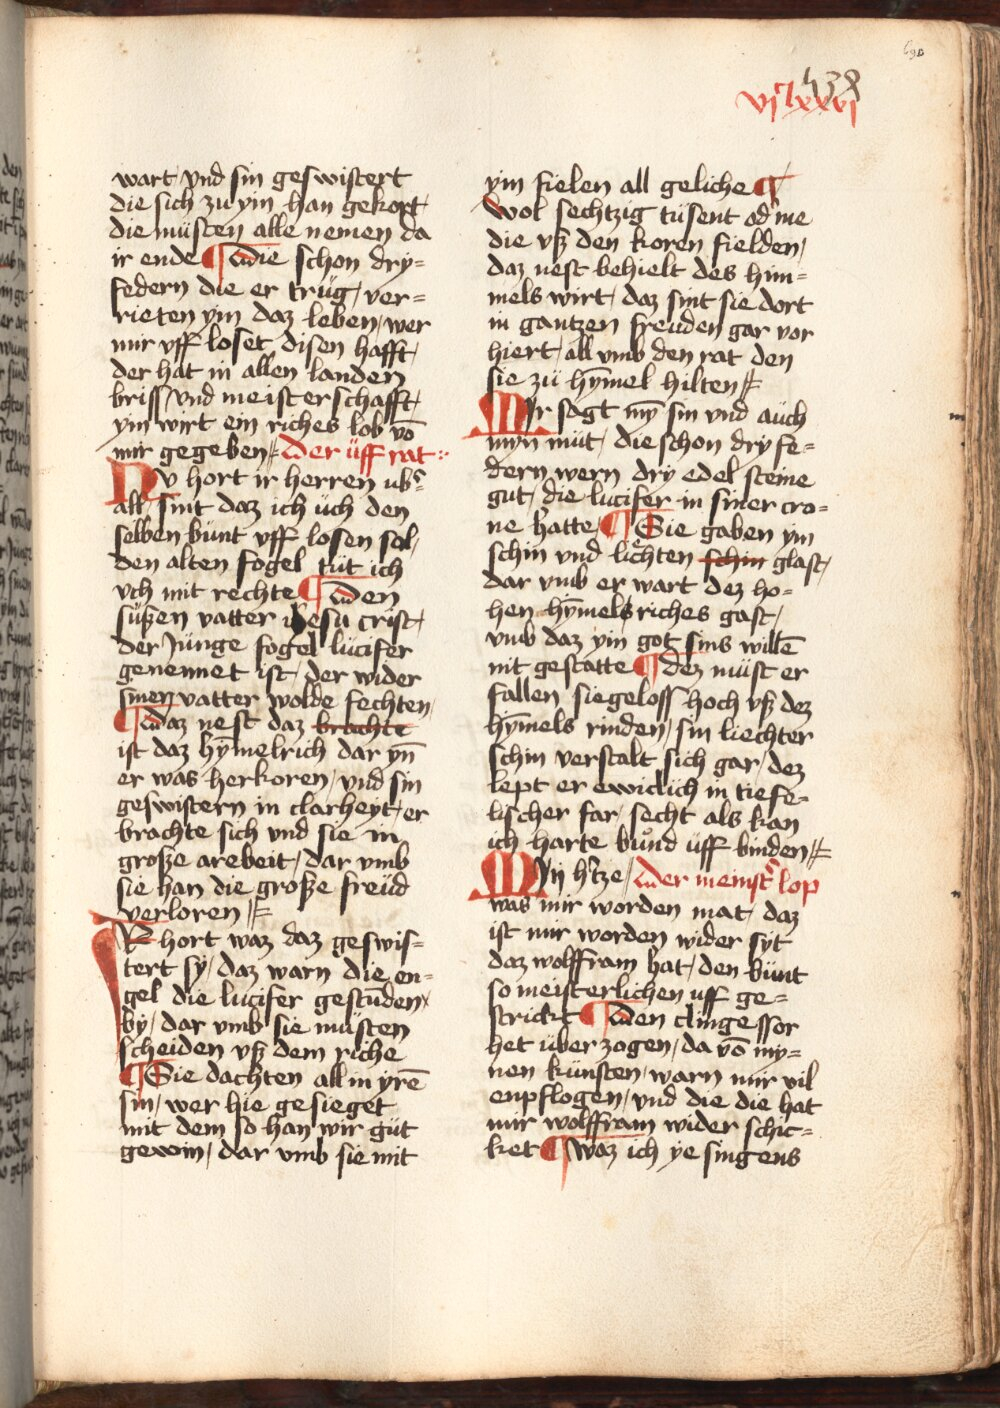 690
438
vjclxxvj
wart / vnd sin geswistert
die sich zu ym han gekort /
die müsten alle nemen da
ir ende ¶ Die schon dry=
federn die er trüg / ver=
rieten ym daz leben / wer
mir vff loset disen hafft /
der hat in allen landen
briss vnd meisterschafft /
ym wirt ein riches lob vō
mir gegeben // Der üff rat :
NV hort ir herren vb͛
all / sint daz ich üch den
selben bunt vff losen sol /
den alten fogel tüt ich
vch mit rechte ¶ Den
süßen vatter ihesu crist /
der Junge fogel lucifer
genennet ist / der wider
sinen vatter wolde fechten /
¶ Daz nest daz brachte
ist daz hȳmelrich dar yn̄
er was herkoren / vnd sin
geswistern in clarheyt / er
brachte sich vnd sie in
große arebeit / dar vmb
sie han die große freüd
verloren //
JR hort waz daz geswis=
tert sy / daz warn die en=
gel die lucifer gestūden /
by / dar vmb sie müsten
scheiden vß dem riche
¶ Sie dachten all in yrē
sin / wer hie gesieget
mit dem so han wir güt
gewin / dar vmb sie mit
ym fielen all geliche ¶
wol sechtzig tüsent od͛ me
die vß den koren fielden /
daz nest behielt des him=
mels wirt / daz sint sie dort
in gantzen freuden gar vor
hiert / all vmb den rat den
sie zü hȳmel hilten //
MIr sagt mȳ sin vnd aüch
myn müt / die schon dry fe=
dern wern dry edel steine
gut / die lucifer in siner cro=
ne hatte / ¶ Sie gaben ym
schin vnd liechten schin glast /
dar vmb er wart dez ho=
hen hȳmels riches gast /
vmb daz ym got sins willē
nit gestatte ¶ dez müst er
fallen siegeloss hoch vß dez
hȳmels rinden / sin liechter
schin verstalt sich gar / dez
lept er ewiclich in tiefe=
lischer far / secht als kan
ich harte bund üff binden //
MIn h͛tze / Der meinst͛ lop
was mir worden mat / daz
ist mir worden wider syt
daz wolffram hat / den bünt
so meisterlichen uff ge=
strickt ¶ Den clingessor
het über zogen / da vō my=
nen künsten / warn mir vil
enpflogen / vnd die die hat
mir wolffram wider schic=
ket ¶ waz ich ye singens